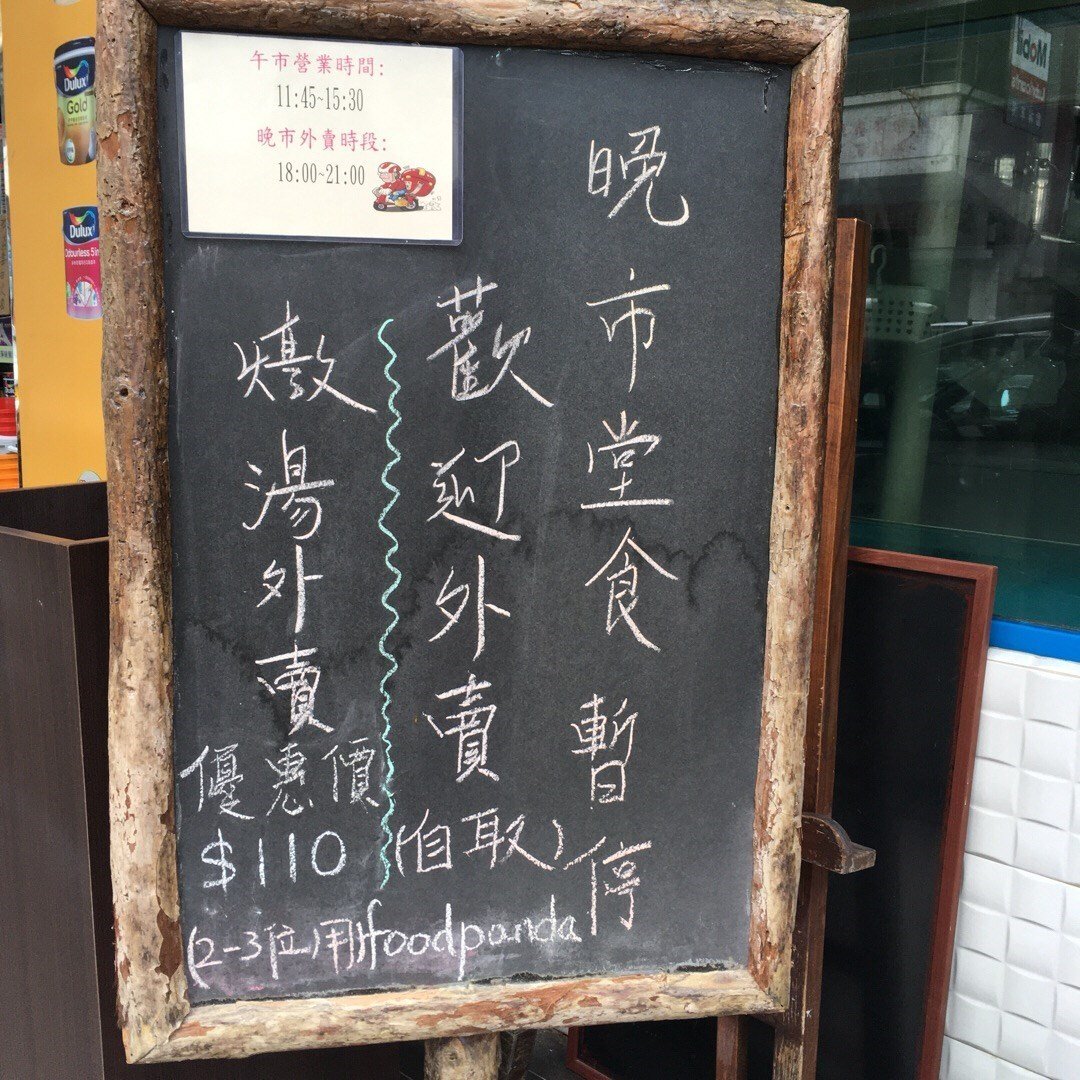 午市營業時間:
11:45~15:30
晚市外賣時段:
18:00~21:00
晚市堂食暫停
歡迎外賣
(自取)
foodpanda
燉湯外賣
優惠價
$110
(2-3位)用
Dulux
Gold
Dulux
Odourless 5in
Mobil